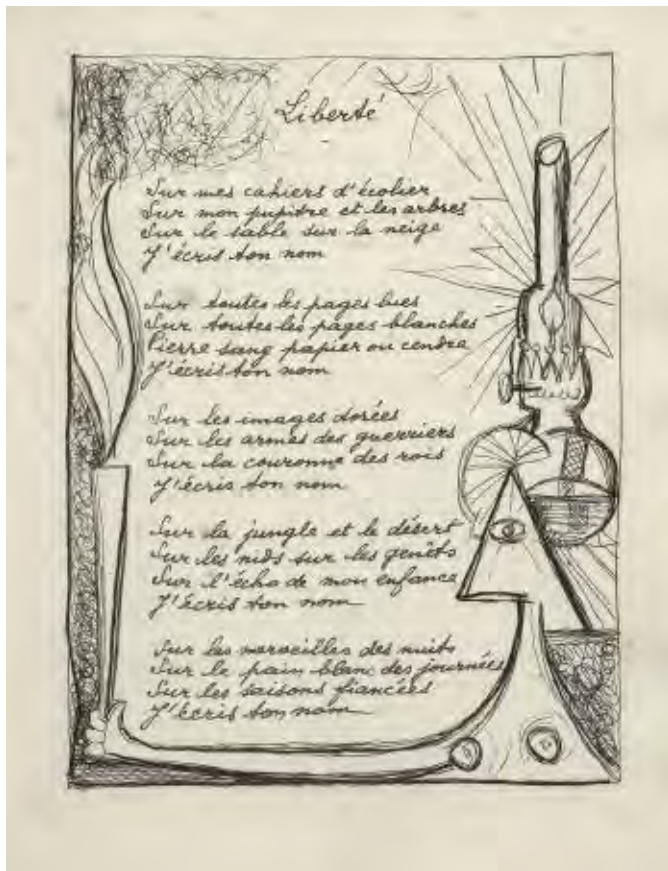 Liberté
Sur mes cahiers d'écolier
Sur mon pupitre et les arbres
Sur le sable sur la neige
J'écris ton nom
Sur toutes les pages lues
Sur toutes les pages blanches
Pierre sang papier ou cendre
J'écris ton nom
Sur les images dorées
Sur les armes des guerriers
Sur la couronne des rois
J'écris ton nom
Sur la jungle et le désert
Sur les nids sur les genêts
Sur l'écho de mon enfance
J'écris ton nom
Sur les merveilles des nuits
Sur le pain blanc des journées
Sur les saisons fiancées
J'écris ton nom